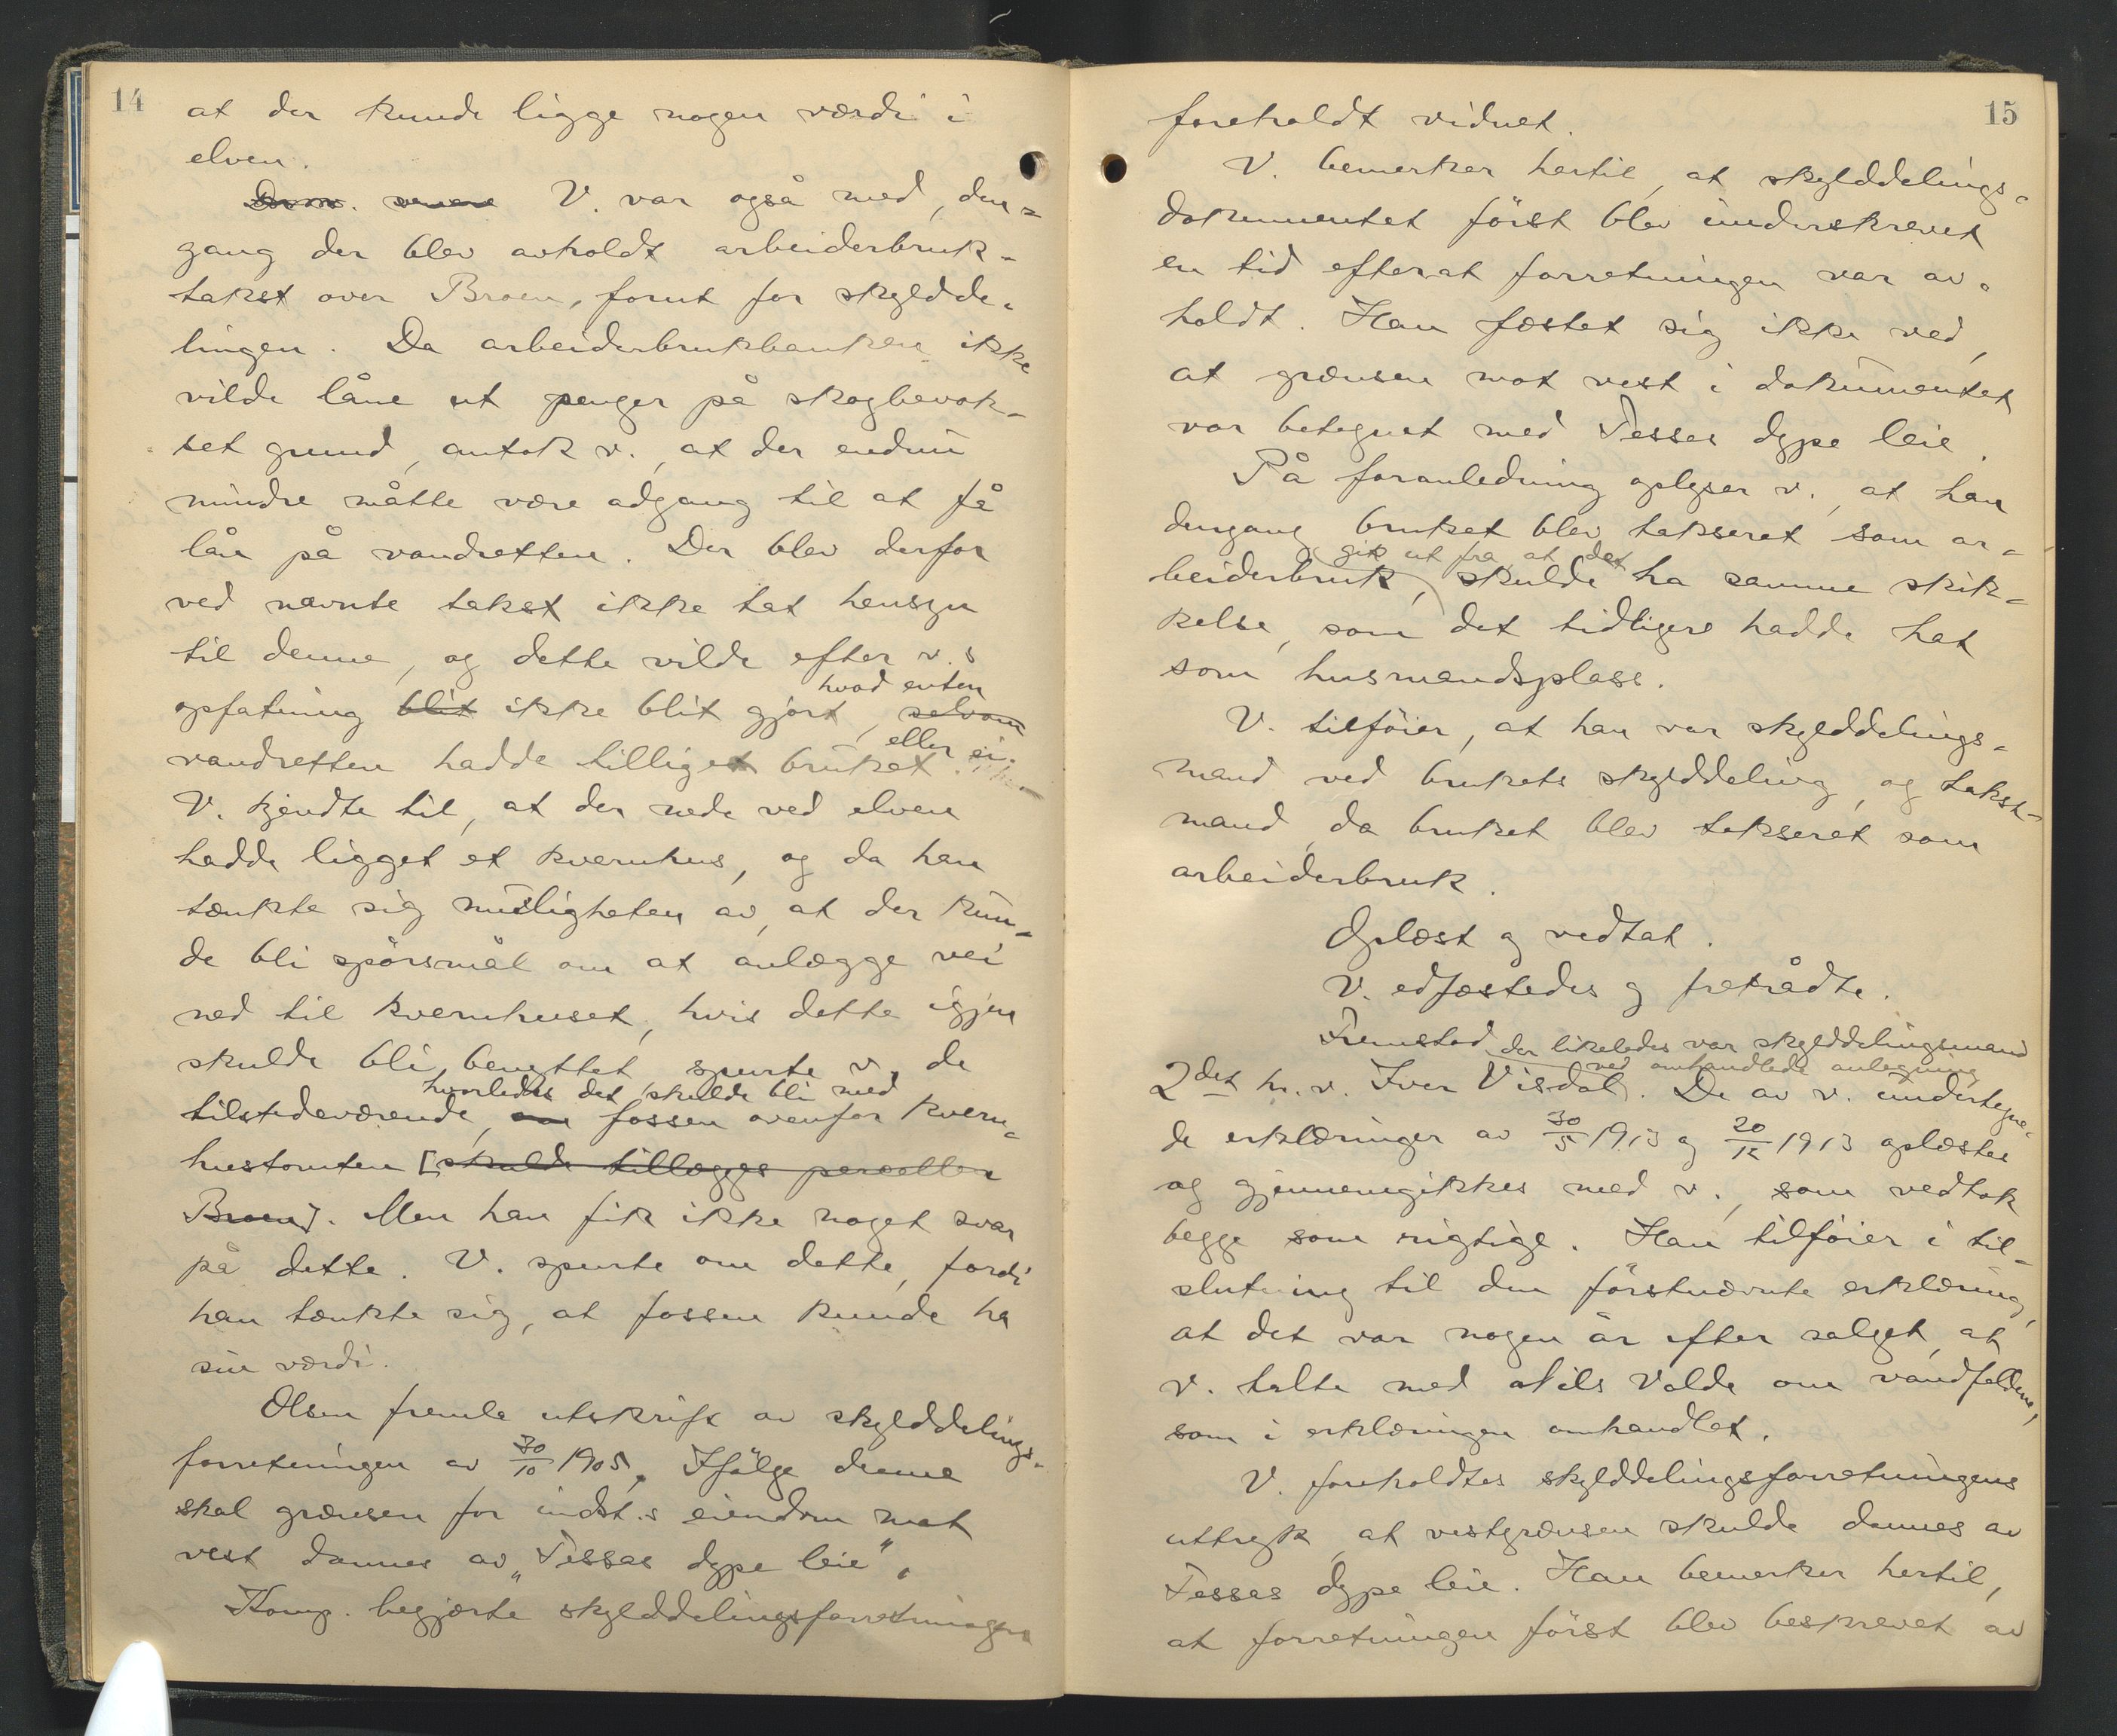 14
at der kunde ligge nogen værdi i
elven.
V. var også med, den=
gang der blev avholdt arbeiderbruk-
takst over Broen, forut for skylddel-
lingen. Da arbeiderbrukbanken ikke
vilde låne ut penger på skogbevok-
set grund, antok v., at der endnu
mindre måtte være adgang til at få
lån på vandretten. Der blev derfor
ved nævnte takst ikke tat hensyn
til denne, og dette vilde efter v.s
hvad enten
opfatning blit ikke blit gjort, selvom
eller ei.
vandretten hadde tilliget bruket.
V. kjendte til, at der nede ved elven
hadde ligget et kvernhus, og da han
tænkte sig muligheten av, at der kun-
de bli spörsmål om at anlægge vei
ned til kvernhuset, hvis dette igjen
skulde bli benyttet, spurte v. de
hvorledes det skulde bli med
tilstedeværende, om fossen ovenfor kvern-
hustomten [skulde tillægges parcellen
Broen]. Men han fik ikke noget svar
på dette. V. spurte om dette, fordi
han tænkte sig, at fossen kunde ha
sin værdi.
Olsen fremla utskrift av skylddelings-
forretningen av 30/10 1905. Ifölge denne
skal grænsen for indst.s eiendom mot
vest dannes av "Tessas dype leie".
Komp. begjærte skylddelingsforretningen
15
foreholdt vidnet.
V. bemerker hertil, at skylddelings-
dokumentet först blev underskrevet
en tid efterat forretningen var av-
holdt. Han fæstet sig ikke ved,
at grænsen mot vest i dokumentet
var betegnet med Tesses dype leie.
På foranledning oplyser v., at han
dengang bruket blev taksert som ar-
gik ut fra at det
beiderbruk, skulde ha samme skik-
kelse, som det tidligere hadde hat
som husmandsplass.
V. tilföier, at han var skylddelings-
mand ved brukets skylddeling, og takst-
mand, da bruket blev takseret som
arbeiderbruk.
Oplæst og vedtat.
V. edfæstedes og fratrådte.
Fremstod der likeledes var skylddelingsmand
ved omhandlede anledning
2det h.v. Iver Visdal. De av v. undertegne-
de erklæringer av 30/5 1913 og 20/12 1913 oplæstes
og gjennemgikkes med v., som vedtok
begge som rigtige. Han tilföier i til-
slutning til den förstnævnte erklæring,
at det var nogen år efter salget, at
v. talte med Nils Valde om vandfaldene,
som i erklæringen omhandlet.
V. foreholdtes skylddelingsforretningens
uttryk, at vestgrænsen skulde dannes av
Tesses dype leie. Han bemerker hertil,
at forretningen först blev beskrevet av